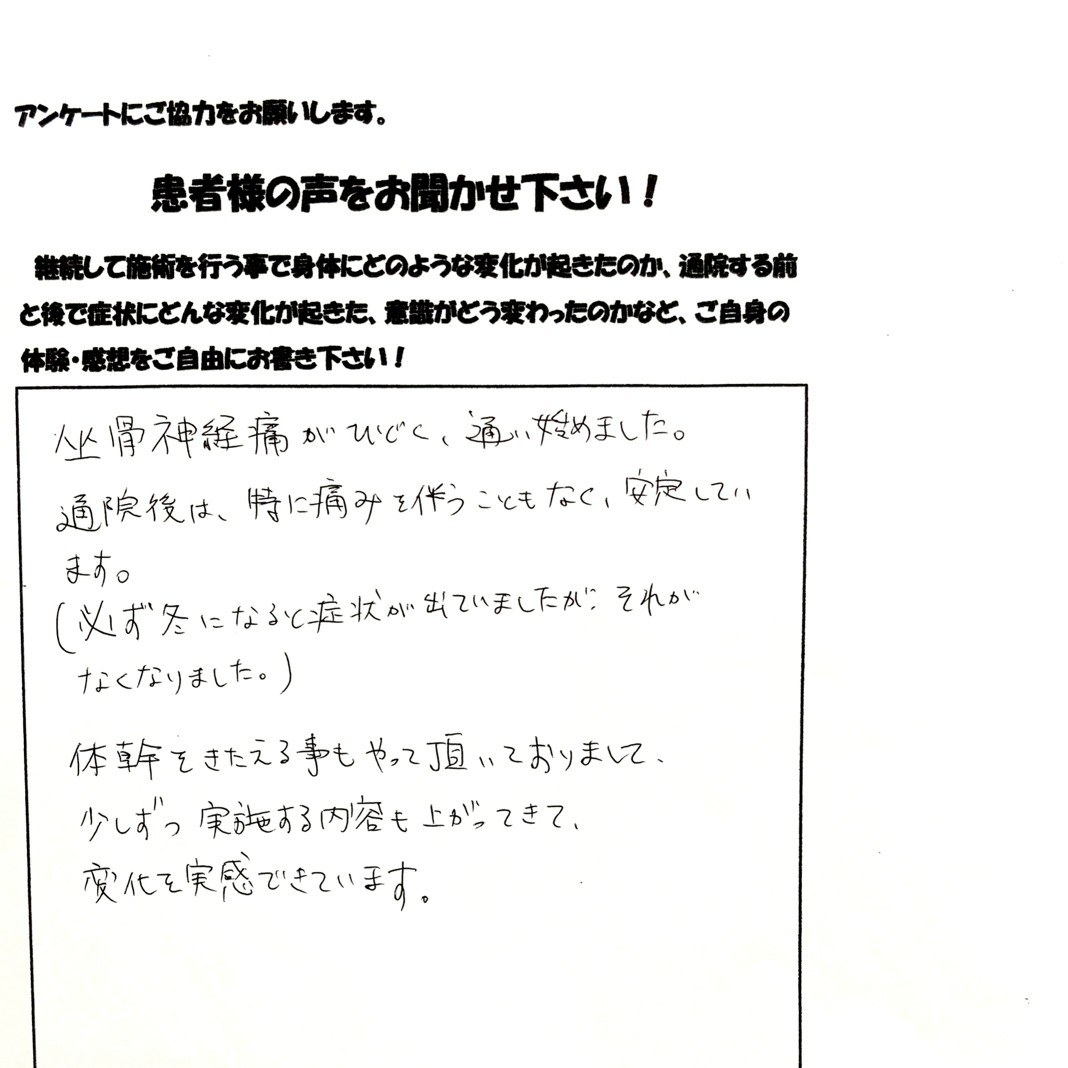 アンケートにご協力をお願いします。
患者様の声をお聞かせ下さい！
継続して施術を行う事で身体にどのような変化が起きたのか、通院する前
と後で症状にどんな変化が起きた、意識がどう変わったのかなど、ご自身の
体験・感想をご自由にお書き下さい！
坐骨神経痛がひどく、通い始めました。
通院後は、特に痛みを伴うこともなく、安定してい
ます。
(必ず冬になると症状が出ていましたが、それが
なくなりました。)
体幹をきたえる事もやって頂いておりまして、
少しずつ実施する内容も上がってきて、
変化を実感できています。